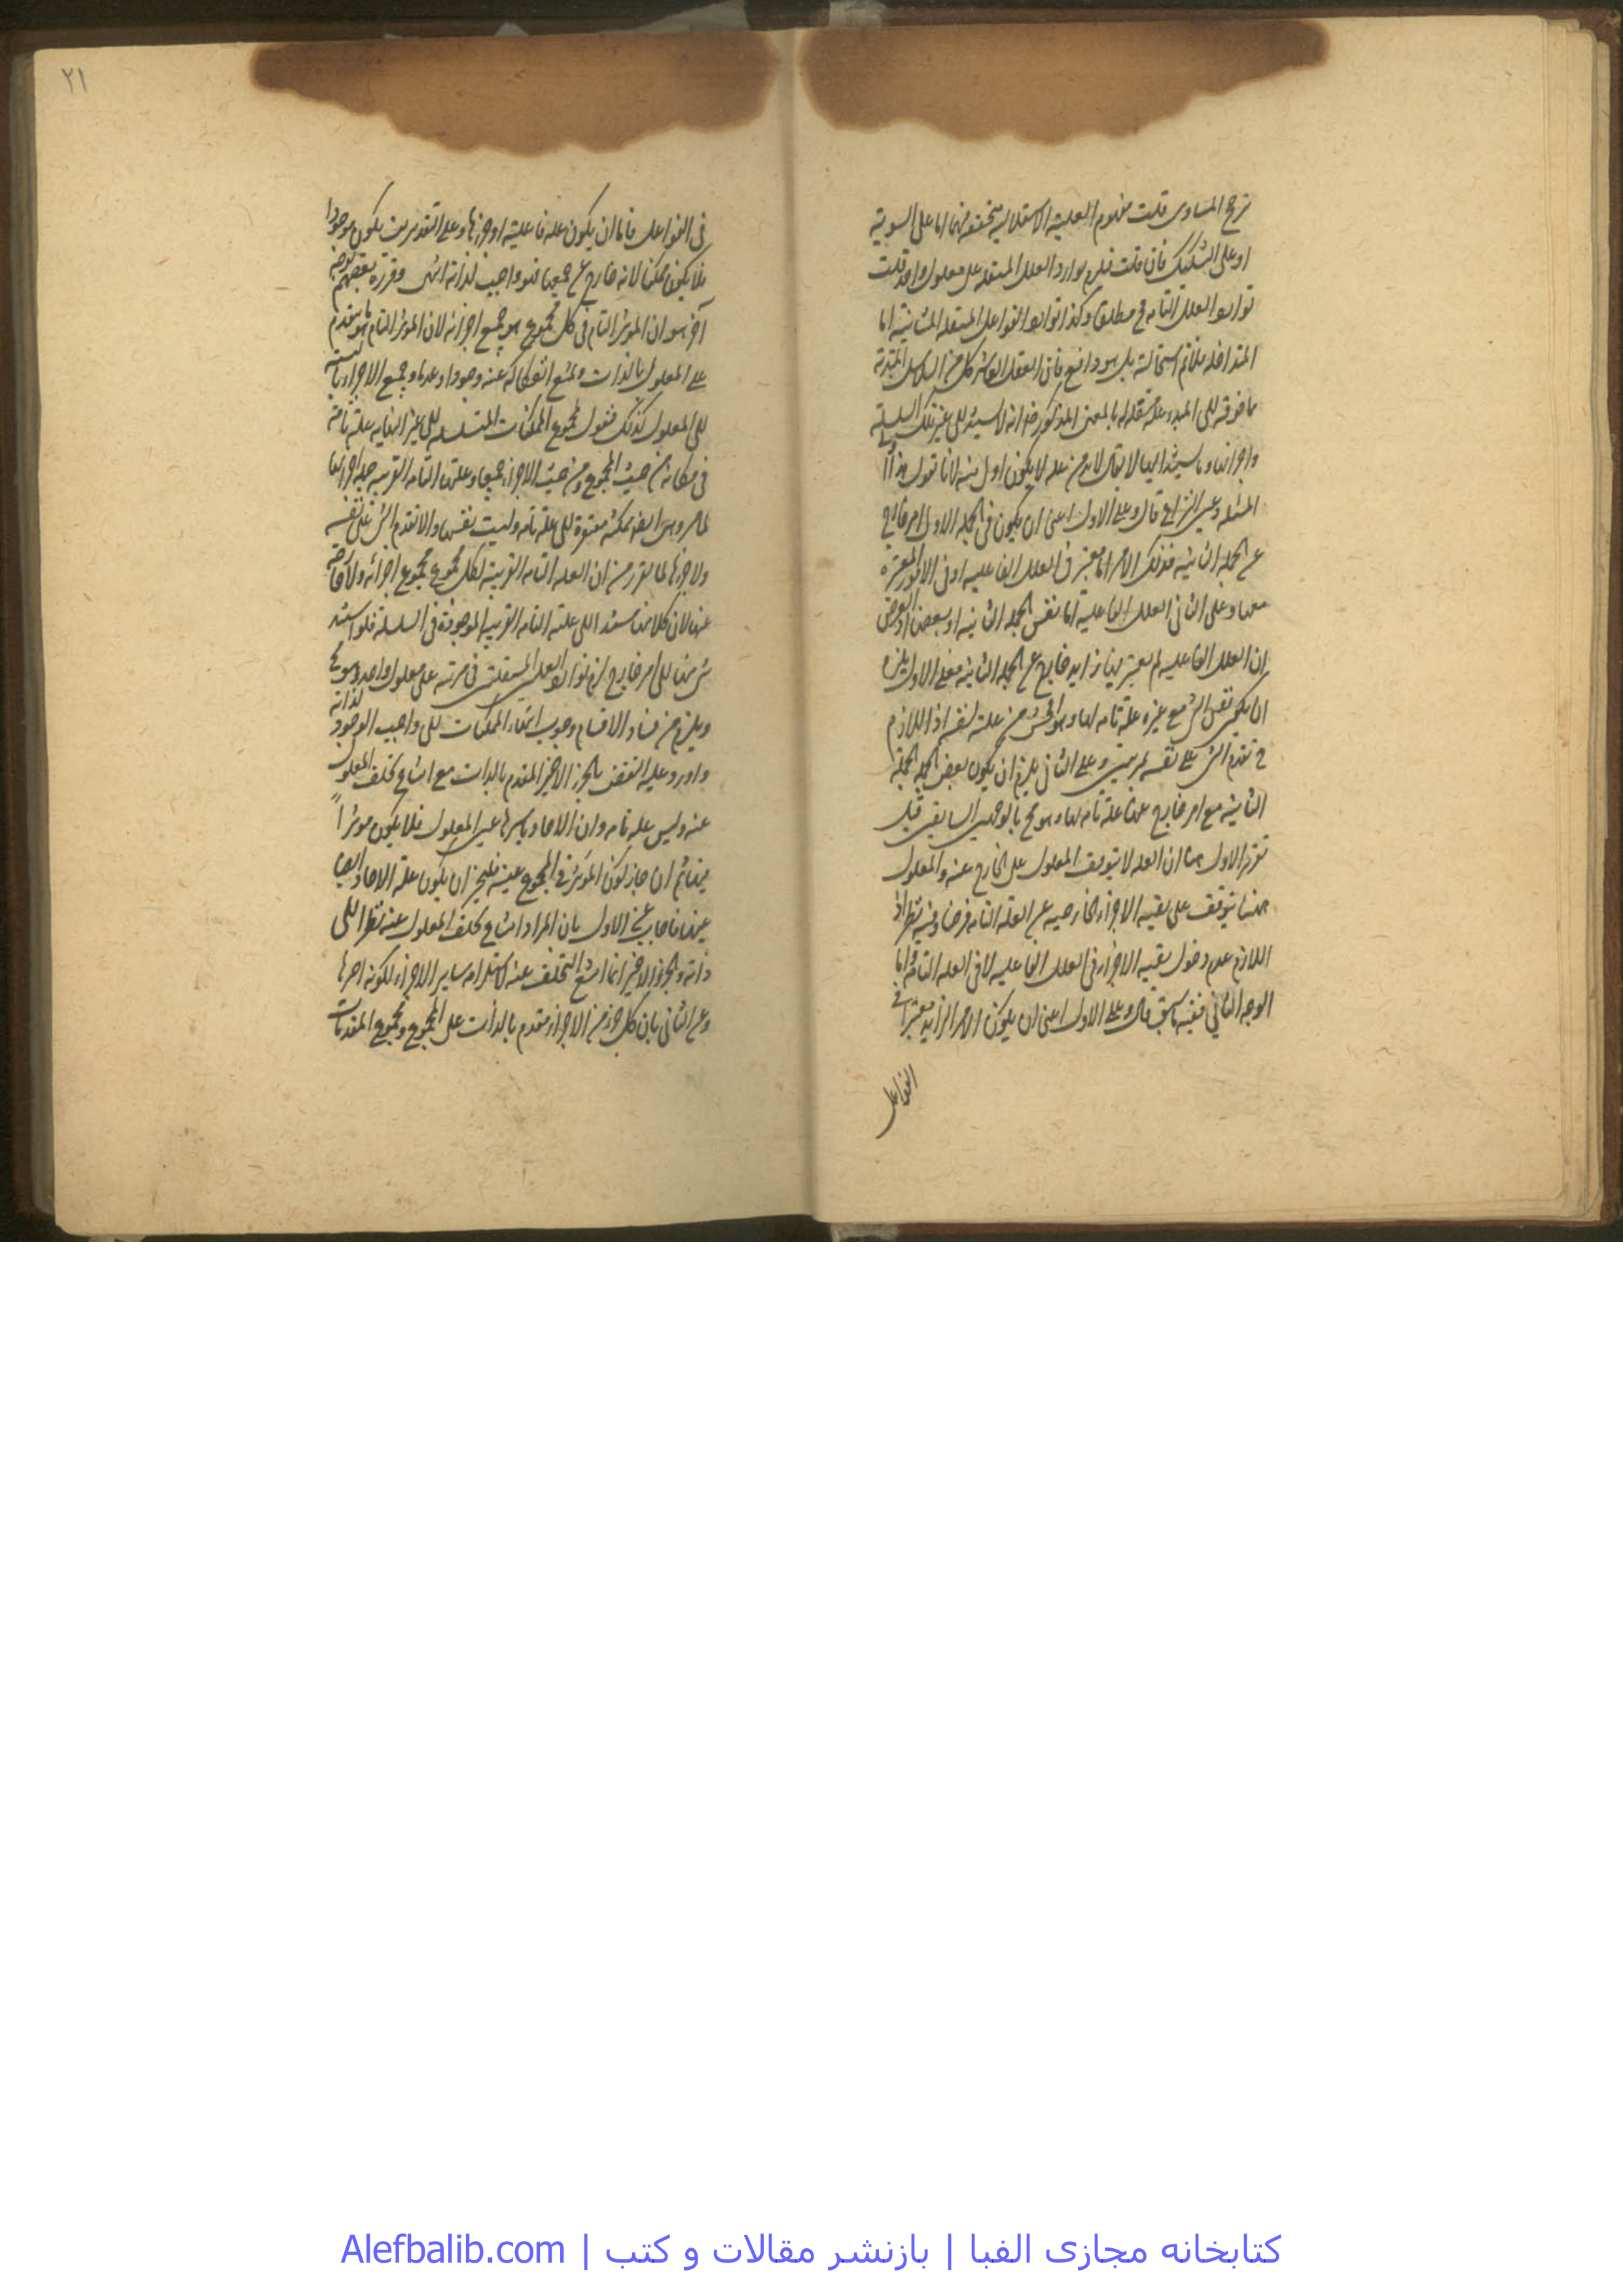 ترجح المساوى قلت مفهوم العلية الاستقلالية متحققة فيهما اما على السوية
او على التشكيك فان قلت فيلزم توارد العلل المستقلة على معلول واحد قلت
توارد العلل التامة مح مطلقا وكذا توارد الفواعل المستقلة المتباينة اما
المتداخلة فلا تم استحالته بل هو واقع فان العقل العاشر كل من السلاسل المبتدئة
ما فوقه الى المبدء علة مستقلة له بالمعنى المذكور ضرورة انه لا يستند الى غير تلك السلسلة
واجزائها وما يستند اليها لا يقال لا بد من علة لا يكون اولى منه لانا نقول هذا اول
المسئلة وعين النزاع قال وعلى الاول اعنى ان يكون فى الجملة الاولى امر خارج
عن الجملة الثانية فذلك الامر اما معتبر فى العلل الفاعلية او فى الامور المعتبرة
معها وعلى الثانى العلل الفاعلية اما نفس الجملة الثانية او بعضها اذ الفرض
ان العلل الفاعلية لم يعتبر فيها زايد خارج عن الجملة الثانية فعلى الاول يلزم
ان يكون نفس الشئ مع غيره علة تامة لها وهو افحش من علية لنفسه اذ اللازم
ح تقدم الشئ على نفسه بمرتبتين وعلى الثانى يلزم ان يكون بعض الجملة
الثانية مع امر خارج عنها علة تامة لها وهو مح بالوجهين السابقين قبل
تقرير الاول هنا ان العلة لا يتوقف المعلول على الخارج عنه والمعلول
ههنا يتوقف على بقية الاجزاء الخارجية عن العلة التامة فرضا وفيه نظر اذ
اللازم عدم دخول بقية الاجزاء فى العلل الفاعلية لا فى العلة التامة واما
الوجه الثانى ففيه ما سبق قال وعلى الاول اعنى ان يكون الامر الزايد معتبرا فى
الفواعل
٢١
فى الفواعل فاما ان يكون علة فاعلية او جزءها وعلى التقديرين يكون موجودا
فلا يكون ممكنا لانه خارج عن جميعها فهو واجب لذاته انتهى وقرره بعضهم بوجه
آخر هو ان المؤثر التام فى كل مجموع هو جميع اجزائه لان المؤثر التام ما هو يتقدم
على المعلول بالذات ويمتنع انفكاكه عنه وجودا وعدما وجميع الاجزاء بالنسبة
الى المعلول كذلك فنقول مجموع الممكنات المتسلسلة الى غير النهاية علته تامة
فى مكانه من حيث المجموع ومن حيث الاجزاء جميعا وعلتها التامة القريبة جملة اجزائها
لما مر وهى ايضا ممكنة مفتقرة الى علة تامة وليست نفسها والا تقدم الشئ على نفسه
ولا جزءها لما تقرر من ان العلة التامة القريبة لكل مجموع مجموع اجزائه ولا خارجة
عنها لان كلا منها يستند الى علته التامة القريبة الموجودة فى السلسلة فلو استند
شئ منها الى امر خارج لزم توارد العلل المستقلتين فى مرتبة على معلول واحد وهو مح
ويلزم من فساد الاقسام وجوب انتهاء الممكنات الى واجب الوجود لذاته
واورد عليه النقض بالجزء الاخير المتقدم بالذات مع امتناع تخلف المعلول
عنه وليس علة تامة وان الاحاد باسرها عين المعلول فلا يكون مؤثرا
فيها ثم ان جاز كون المؤثر فى المجموع عينه فليجز ان يكون علة الاحاد ايضا
عينها فاجاب عن الاول بان المراد امتناع تخلف المعلول عنه نظرا الى
ذاته والجزء الاخير انما امتنع التخلف عنه لاستلزامه ساير الاجزاء لكونه اخرها
وعن الثانى بان كل جزء من الاجزاء متقدم بالذات على المجموع ومجموع المتقدمات
کتابخانه مجازی الفبا | بازنشر مقالات و کتب | Alefbalib.com